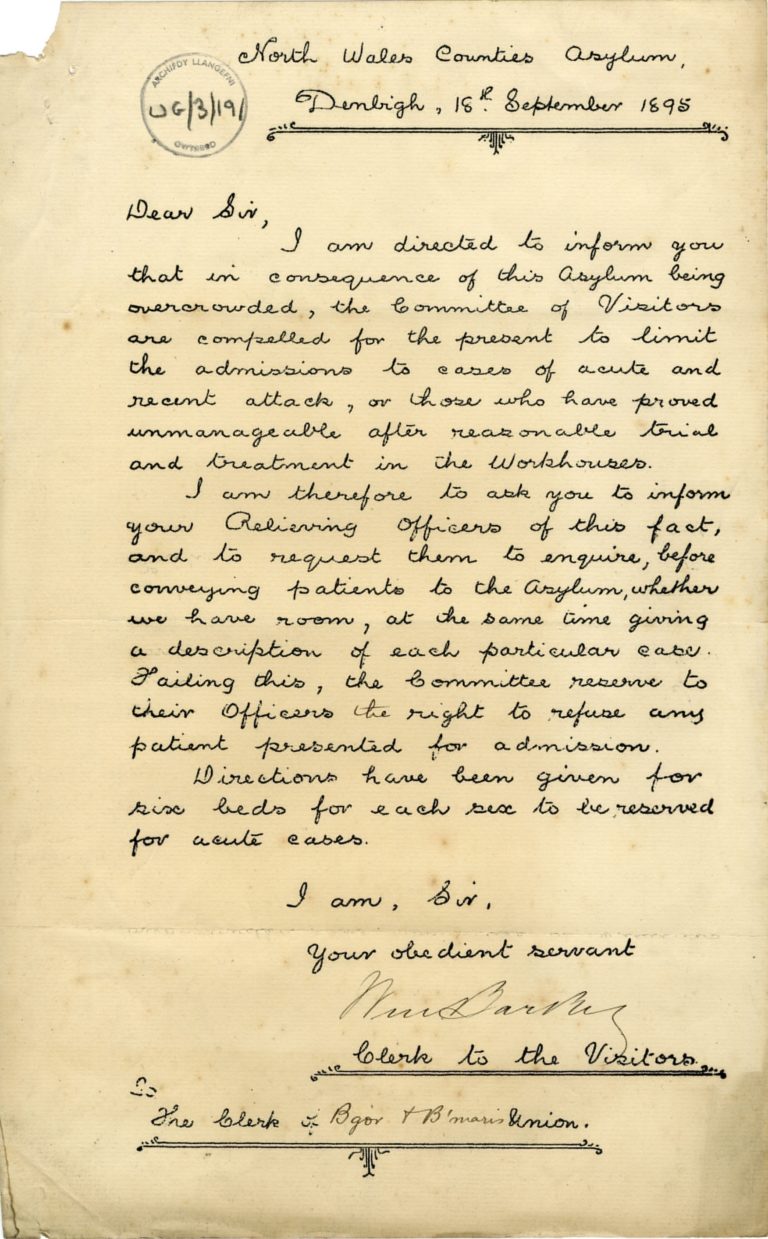 North Wales Counties Asylum,
Denbigh, 18th September 1895
ARCHIFDY LLANGEFNI
WG/3/191
Dear Sir,
I am directed to inform you
that in consequence of this Asylum being
overcrowded, the Committee of Visitors
are compelled for the present to limit
the admissions to cases of acute and
recent attack, or those who have proved
unmanageable after reasonable trial
and treatment in the Workhouses.
I am therefore to ask you to inform
your Relieving Officers of this fact,
and to request them to enquire, before
conveying patients to the Asylum, whether
we have room, at the same time giving
a description of each particular case.
Failing this, the Committee reserve to
their Officers the right to refuse any
patient presented for admission.
Directions have been given for
six beds for each sex to be reserved
for acute cases.
I am, Sir,
Your obedient servant
Wm Barker
Clerk to the Visitors.
To
The Clerk of Bgor & B'maris Union.